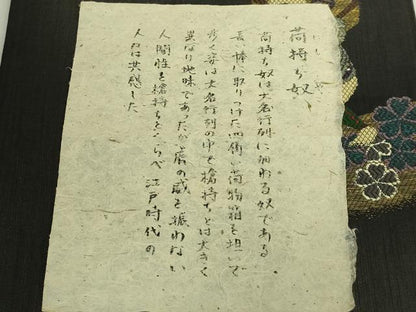 荷持ち奴
荷持ち奴は大名行列に加わる奴である
長い棒に取りつけた四角い荷物箱を担いで
歩く姿は大名行列の中でも槍持ちとは大きく
異なり地味であったが虎の威を振わない
人間性を槍持ちとくらべ江戸時代の
人々は共感した